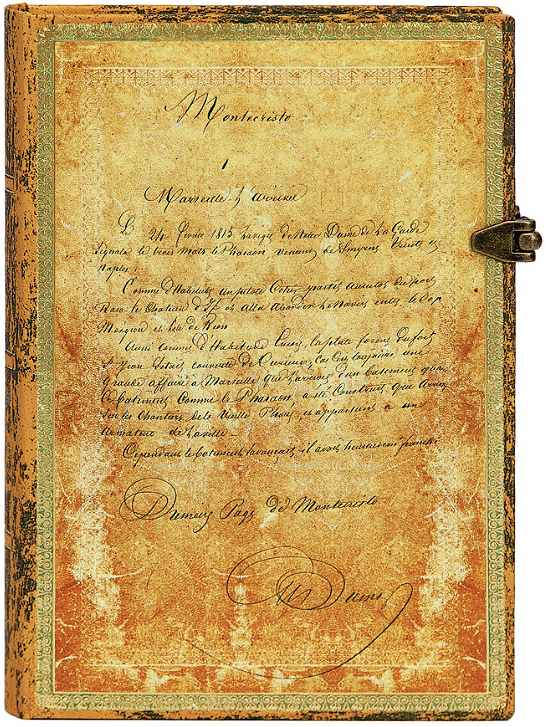 Montecristo
1
Marseille L'arrivée
Le 24 février 1815 la vigie de Notre Dame de la Garde
Signala le trois mats le Pharaon venant de Smyrne Trieste et
Naples.
Comme d'habitude un pilote Cotier partit aussitot du port
Rasa le Chateau d'If et alla aborder le Navire entre le Cap
Morgiou et l'ile de Rion
Aussi comme d'habitude encore, la plate forme du fort
St Jean s'etait couverte de Curieux, car c'est toujours une
grande affaire a Marseille que l'arrivée d'un batiment quand
ce batiment comme le Pharaon a été Construit
Sur les Chantiers de la Vieille Phocée, et appartient a un
armateur de la ville —
Cependant le batiment s'avançait, il avait heureusement franchi
Page de Montecristo
Dumas